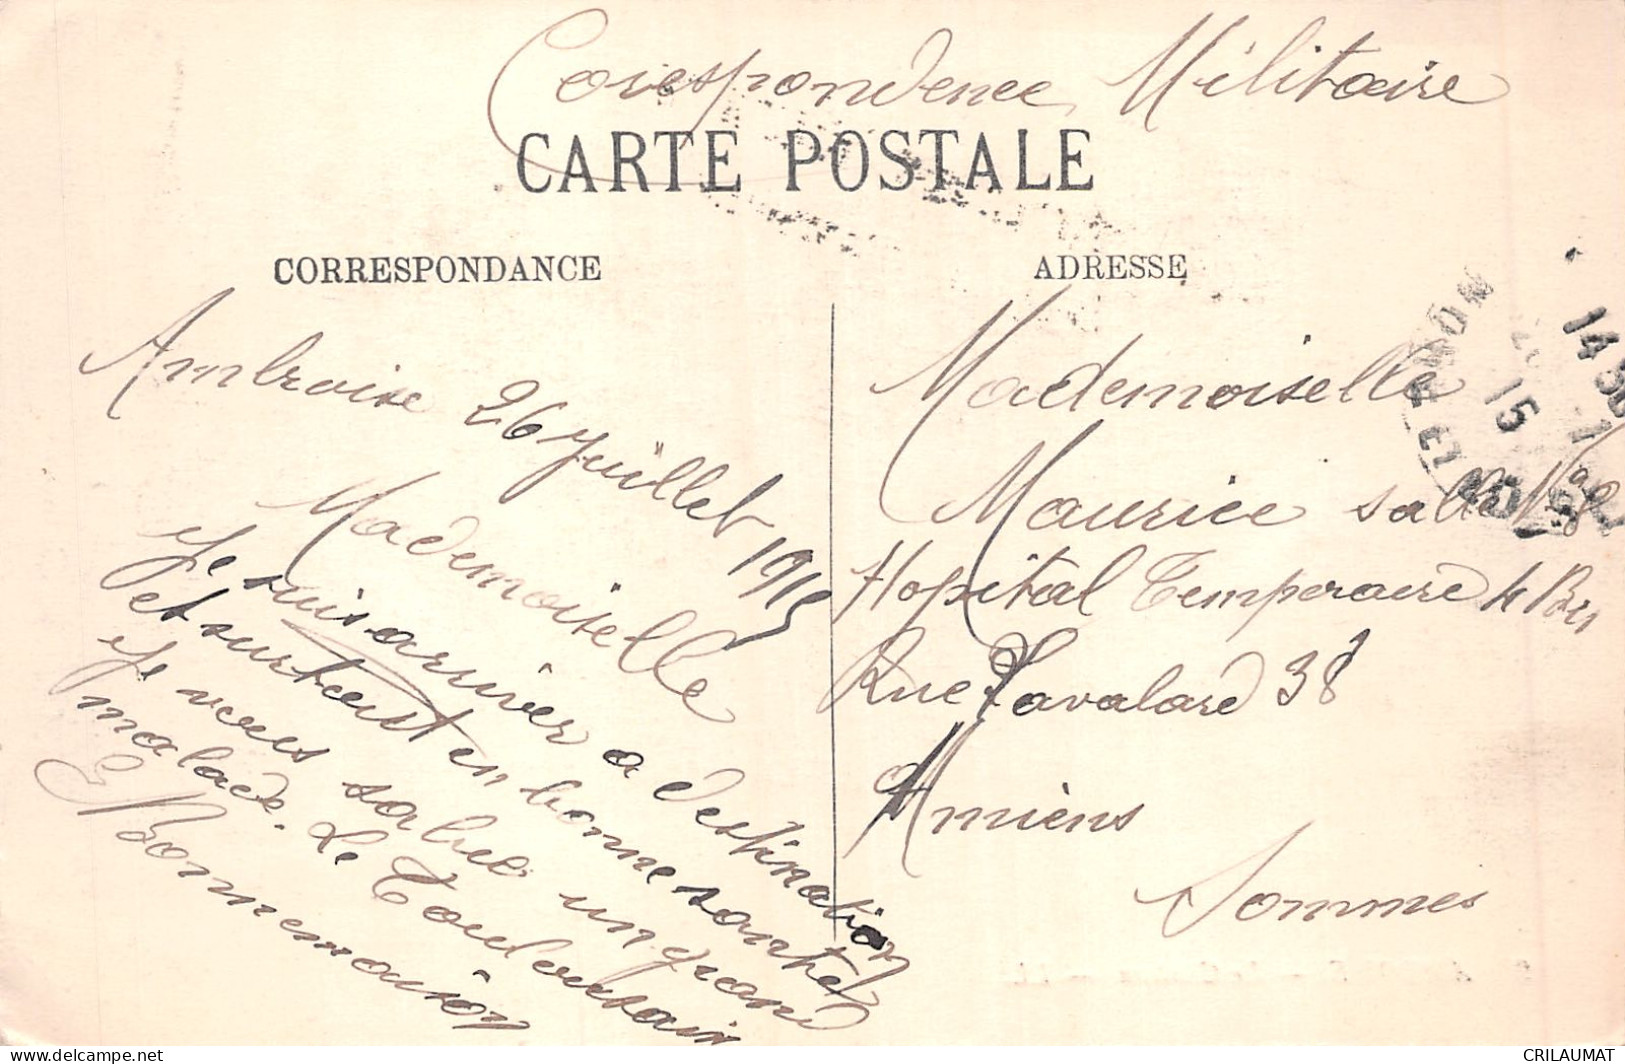 Corespondence Militaire
CARTE POSTALE
CORRESPONDANCE
Ambroise 26 Juillet 1915
Mademoiselle
je suis arrivér a destination
et surtout en bonne santhé
je vous salue un grand
malade. Le Toulousain
Bonnemaison
ADRESSE
Mademoiselle
Maurice salle
Hopital Temperaire 4 Bis
Rue Lavalard 38
Amiens
Sommes
14 30
15
www.delcampe.net
CRILAUMAT